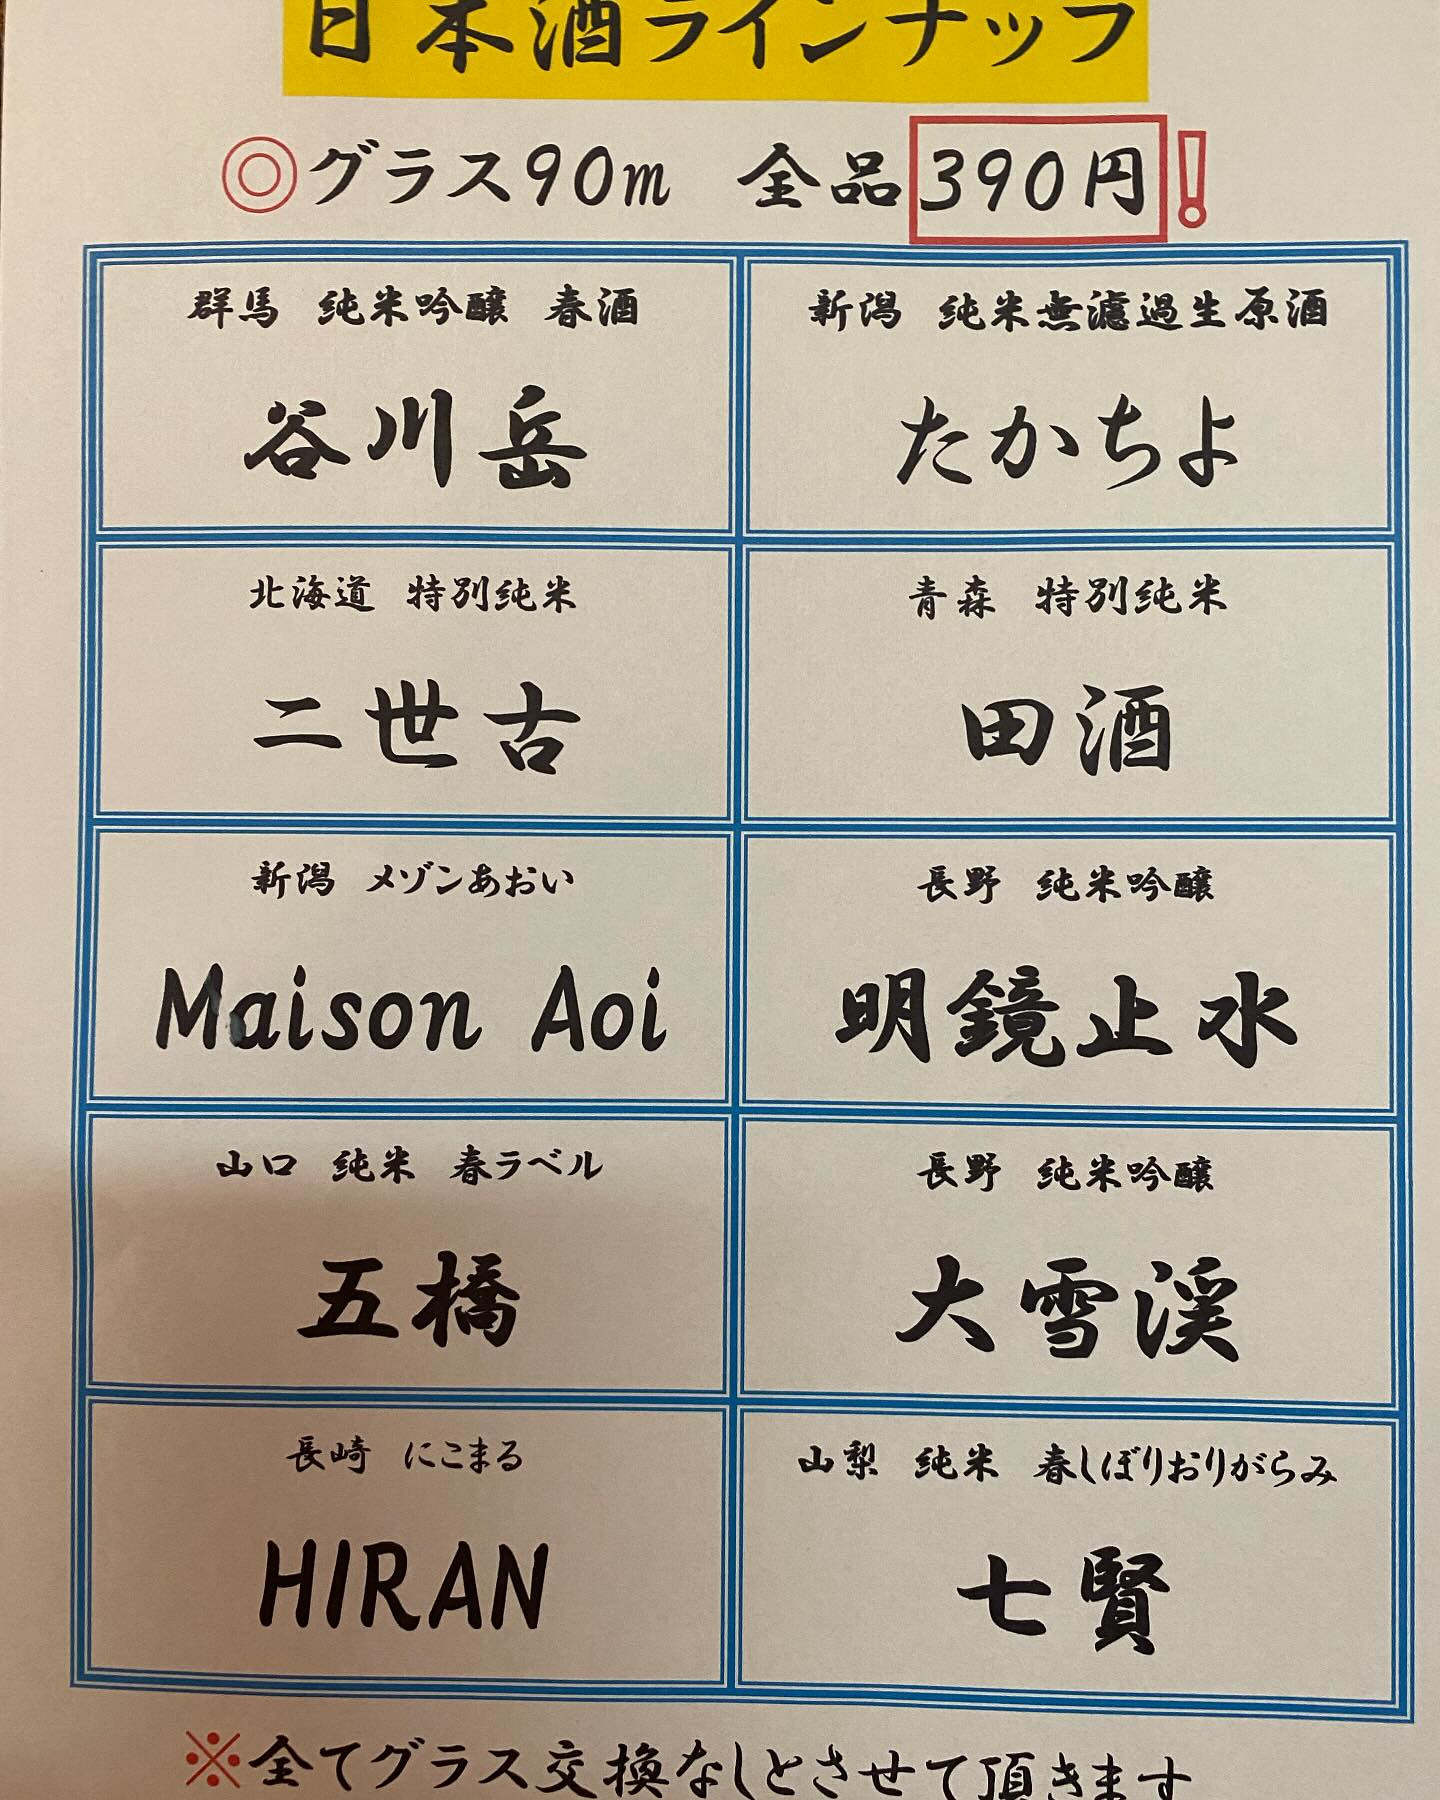 日本酒ラインナップ
◎グラス90m 全品390円!
群馬 純米吟醸 春酒
谷川岳
新潟 純米無濾過生原酒
たかちよ
北海道 特別純米
二世古
青森 特別純米
田酒
新潟 メゾンあおい
Maison Aoi
長野 純米吟醸
明鏡止水
山口 純米 春ラベル
五橋
長野 純米吟醸
大雪渓
長崎 にこまる
HIRAN
山梨 純米 春しぼりおりがらみ
七賢
※全てグラス交換なしとさせて頂きます